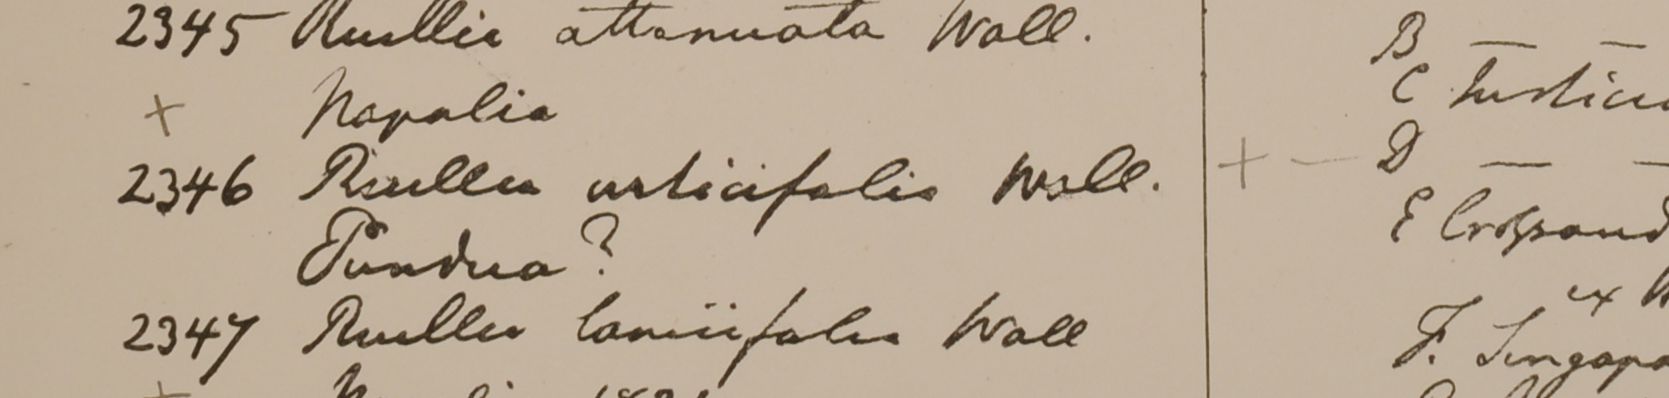 2345 Ruellia attenuata Wall.
+ Napalia
2346 Ruellia urticifolia Wall.
Pundua?
2347 Ruellia lamiifolia Wall
B — —
C Justicia
+ — D — —
E Crossand
ex
F. Singapo